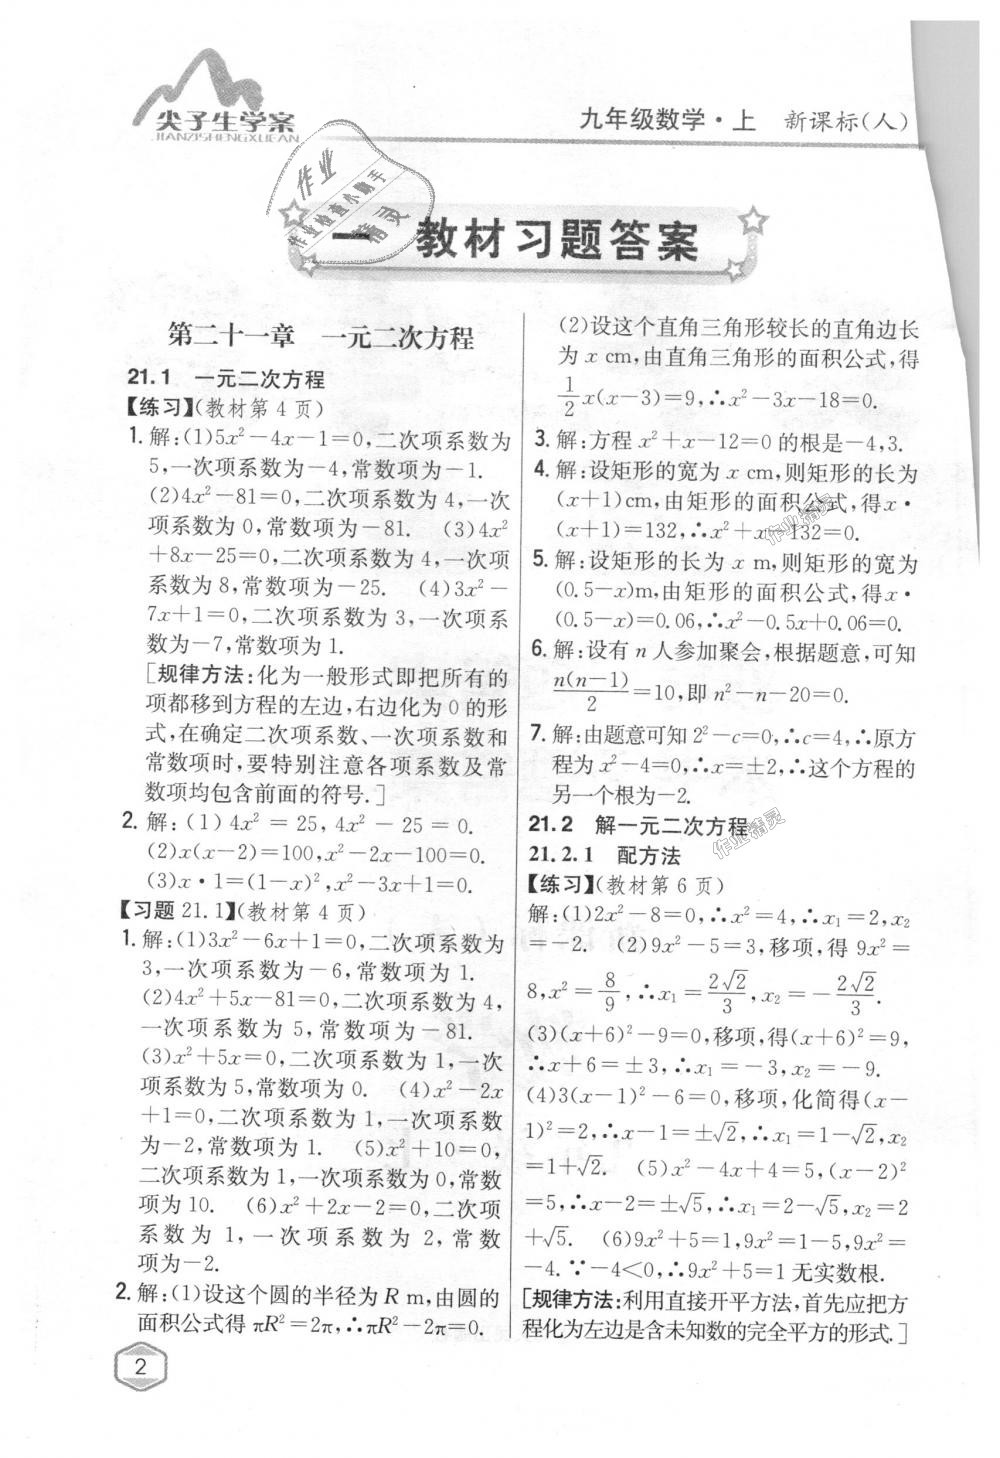 尖子生学案
JIANZISHENGXUEAN
九年级数学·上 新课标(人)
作业
作业检查小助手
精灵
一 教材习题答案
第二十一章 一元二次方程
21.1 一元二次方程
【练习】(教材第4页)
1. 解:(1)5x²-4x-1=0,二次项系数为
5,一次项系数为-4,常数项为-1.
(2)4x²-81=0,二次项系数为4,一次
项系数为0,常数项为-81. (3)4x²
+8x-25=0,二次项系数为4,一次项
系数为8,常数项为-25. (4)3x²-
7x+1=0,二次项系数为3,一次项系
数为-7,常数项为1.
[规律方法:化为一般形式即把所有的
项都移到方程的左边,右边化为0的形
式,在确定二次项系数、一次项系数和
常数项时,要特别注意各项系数及常
数项均包含前面的符号.]
2. 解:(1)4x²=25,4x²-25=0.
(2)x(x-2)=100,x²-2x-100=0.
(3)x·1=(1-x)²,x²-3x+1=0.
【习题21.1】(教材第4页)
1. 解:(1)3x²-6x+1=0,二次项系数为
3,一次项系数为-6,常数项为1.
(2)4x²+5x-81=0,二次项系数为4,
一次项系数为5,常数项为-81.
(3)x²+5x=0,二次项系数为1,一次项
系数为5,常数项为0. (4)x²-2x
+1=0,二次项系数为1,一次项系数
为-2,常数项为1. (5)x²+10=0,
二次项系数为1,一次项系数为0,常数
项为10. (6)x²+2x-2=0,二次项
系数为1,一次项系数为2,常数
项为-2.
2. 解:(1)设这个圆的半径为R m,由圆的
面积公式得πR²=2π,∴πR²-2π=0.
(2)设这个直角三角形较长的直角边长
为x cm,由直角三角形的面积公式,得
1/2x(x-3)=9,∴x²-3x-18=0.
3. 解:方程x²+x-12=0的根是-4,3.
4. 解:设矩形的宽为x cm,则矩形的长为
(x+1)cm,由矩形的面积公式,得x·
(x+1)=132,∴x²+x-132=0.
作业精灵
5. 解:设矩形的长为x m,则矩形的宽为
(0.5-x)m,由矩形的面积公式,得x·
(0.5-x)=0.06,∴x²-0.5x+0.06=0.
6. 解:设有n人参加聚会,根据题意,可知
n(n-1)/2=10,即n²-n-20=0.
7. 解:由题意可知2²-c=0,∴c=4,∴原方
程为x²-4=0,∴x=±2,∴这个方程的
另一个根为-2.
21.2 解一元二次方程
作业精灵
21.2.1 配方法
【练习】(教材第6页)
解:(1)2x²-8=0,∴x²=4,∴x₁=2,x₂
=-2. (2)9x²-5=3,移项,得9x²=
8,x²=8/9,∴x₁=2√2/3,x₂=-2√2/3.
(3)(x+6)²-9=0,移项,得(x+6)²=9,
∴x+6=±3,∴x₁=-3,x₂=-9.
(4)3(x-1)²-6=0,移项,化简得(x-
1)²=2,∴x-1=±√2,∴x₁=1-√2,x₂
=1+√2. (5)x²-4x+4=5,(x-2)²
=5,∴x-2=±√5,∴x₁=2-√5,x₂=2
+√5. (6)9x²+5=1,9x²=1-5,9x²=
-4.∵-4<0,∴9x²+5=1无实数根.
[规律方法:利用直接开平方法,首先应把方
程化为左边是含未知数的完全平方的形式.]
2